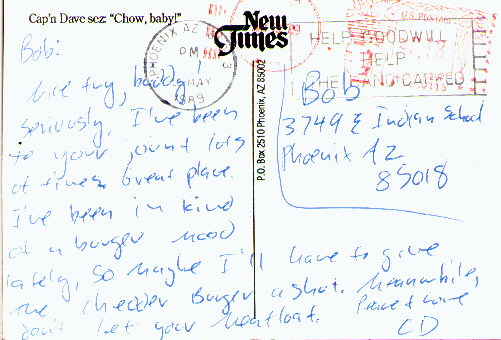 Cap'n Dave sez: "Chow, baby!"
New Times
P.O. Box 2510 Phoenix, AZ 85002
PHOENIX AZ
PM
MAY
1989
U.S. POSTAGE
HELP GOODWILL
HELP
THE HANDICAPPED
Bob:
Nice try, buddy!
Seriously, I've been
to your joint lots
of times. Great place.
I've been in kind
of a burger mood
lately, so maybe I'll have to give
the Cheddar Burger a shot. Meanwhile,
don't let your meatloaf. Peace + love
CD
Bob
3749 E Indian School
Phoenix AZ
85018